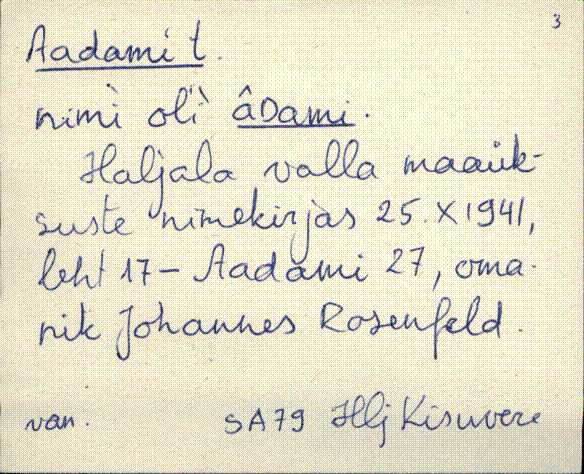 3
Aadami t.
nimi̬ ol̀'ì âDami.
Haljala valla maaük-
suste nimekirjas 25. X 1941,
leht 17 – Aadami 27, oma-
nik Johannes Rosenfeld.
van. SA79 Hlj Kisuvere